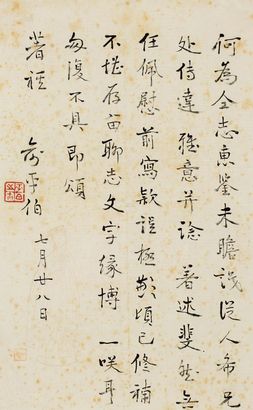 何為仝志惠鉴未瞻識從人希兄
处传達雅意并諗著述斐然無
任佩慰前寫欵误極歉頃已修補
不堪存畱聊志文字缘博一咲耳
匆復不具即頌
著祺
俞平伯 七月廿八日